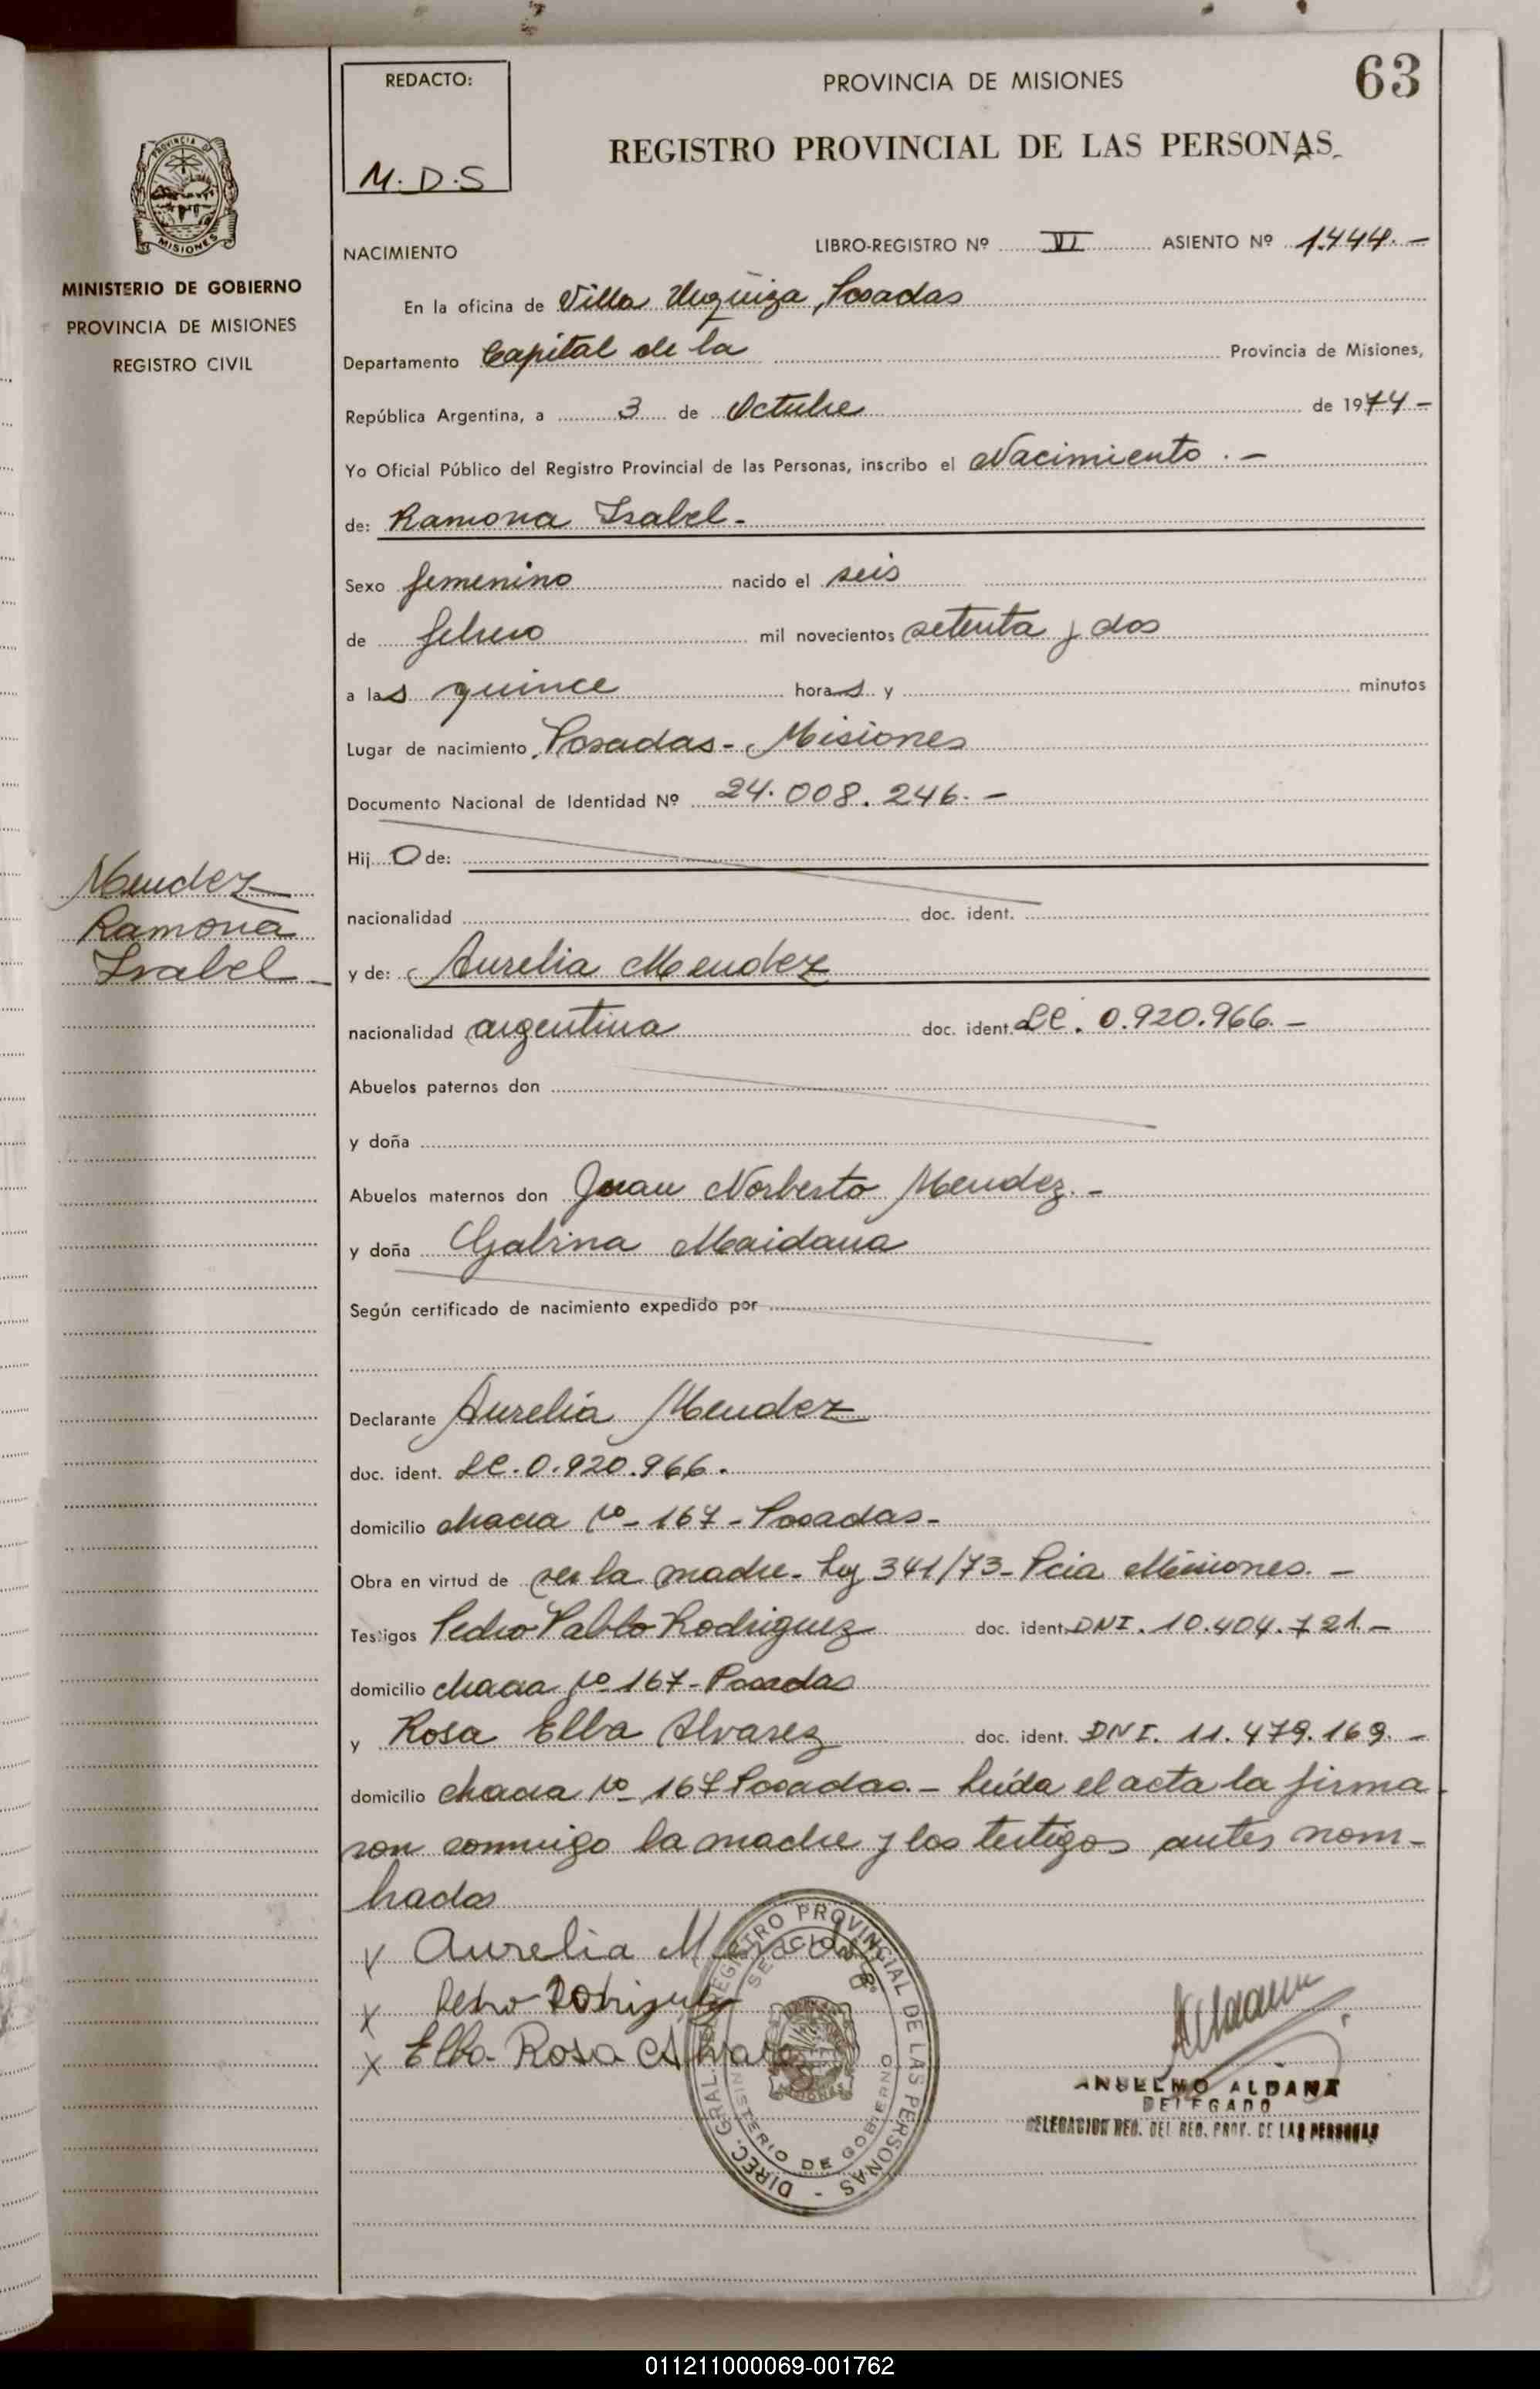 63
REDACTO:
M.D.S
PROVINCIA DE MISIONES
REGISTRO PROVINCIAL DE LAS PERSONAS
PROVINCIA DE
MISIONES
MINISTERIO DE GOBIERNO
PROVINCIA DE MISIONES
REGISTRO CIVIL
NACIMIENTO LIBRO-REGISTRO Nº VI ASIENTO Nº 1.444.-
En la oficina de Villa Urquiza, Posadas
Departamento Capital de la Provincia de Misiones,
República Argentina, a 3 de Octubre de 1974-
Yo Oficial Público del Registro Provincial de las Personas, inscribo el Nacimiento.-
de: Ramona Isabel-
Sexo femenino nacido el seis
de febrero mil novecientos setenta y dos
a las quince horas y minutos
Lugar de nacimiento Posadas- Misiones
Documento Nacional de Identidad Nº 24.008.246.-
Hij O de:
nacionalidad doc. ident.
Mendez
Ramona
Isabel
y de: Aurelia Mendez
nacionalidad argentina doc. ident. LC. 0.920.966.-
Abuelos paternos don
y doña
Abuelos maternos don Juan Norberto Mendez.-
y doña Gabina Maidana
Según certificado de nacimiento expedido por
Declarante Aurelia Mendez
doc. ident. LC.0.920.966.
domicilio chacra Nº- 167-Posadas-
Obra en virtud de ser la madre- Ley 341/73-Pcia Misiones.-
Testigos Pedro Pablo Rodriguez doc. ident. DNI. 10.404.721.-
domicilio chacra Nº 167-Posadas
y Rosa Elba Alvarez doc. ident. DNI. 11.479.169.-
domicilio chacra Nº 167 Posadas.- Leída el acta la firma
ron conmigo la madre y los testigos antes nom-
brados
x Aurelia M
x Pedro Rodriguez
x Elba Rosa Alvarez
DIREC. GRAL. REGISTRO PROVINCIAL DE LAS PERSONAS -
SECCION
MINISTERIO DE GOBIERNO
ANSELMO ALDANA
DELEGADO
DELEGACION REG. DEL REG. PROV. DE LAS PERSONAS
011211000069-001762